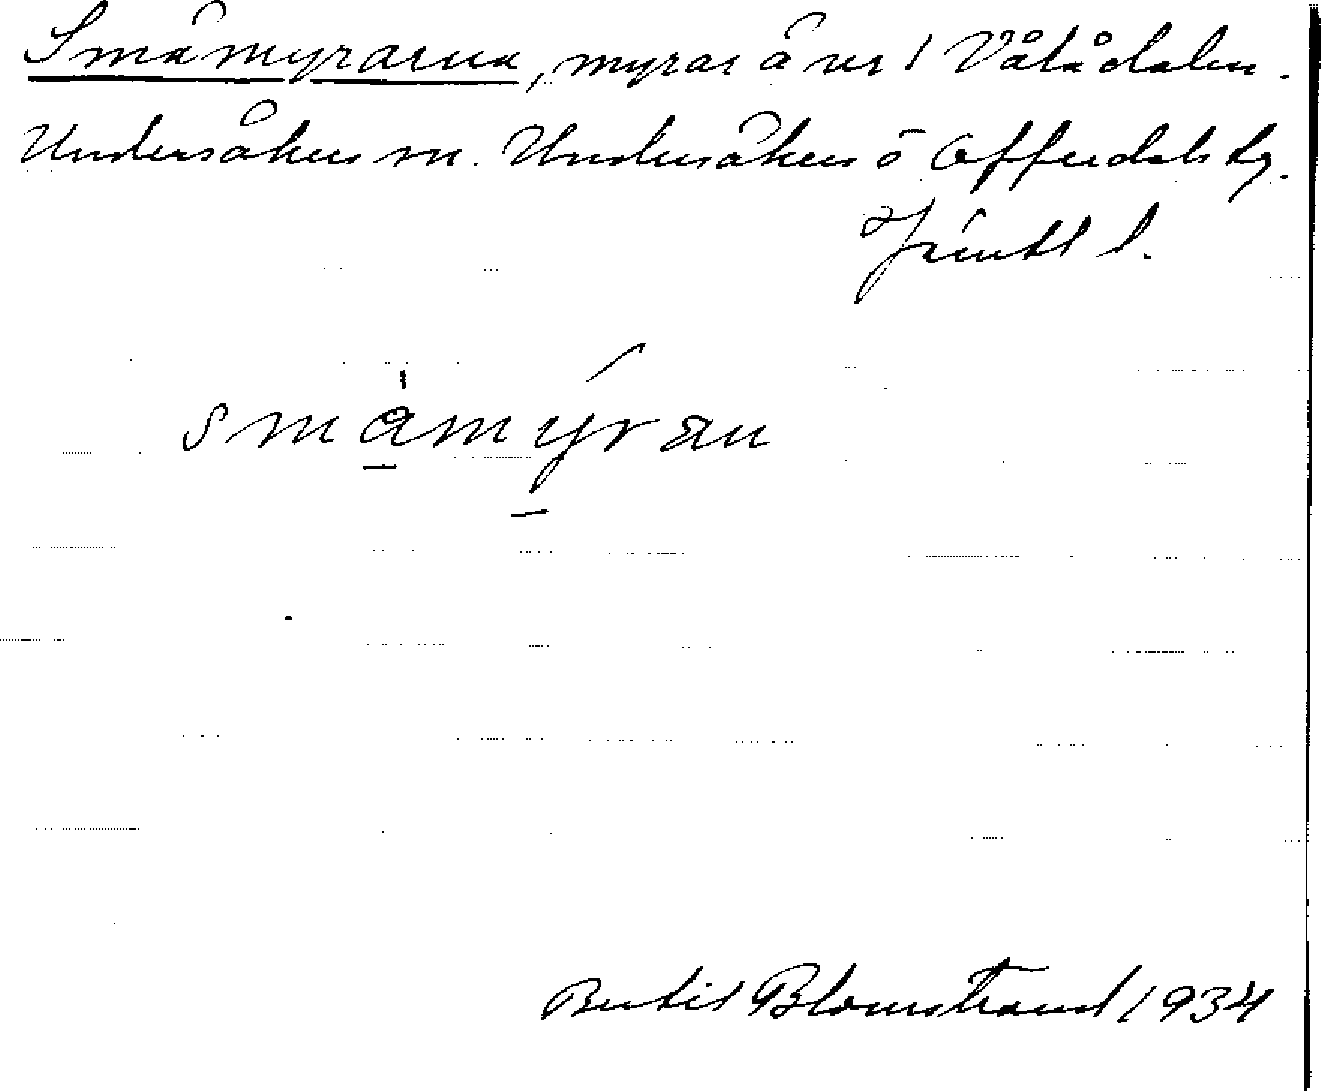 Småmyrarna, myrar å ner i Vålådalen.
Undersåkers sn. Undersåkers o Offerdals tg.
Jämtl l.
småmýran
Bertil Blomstrand 1934